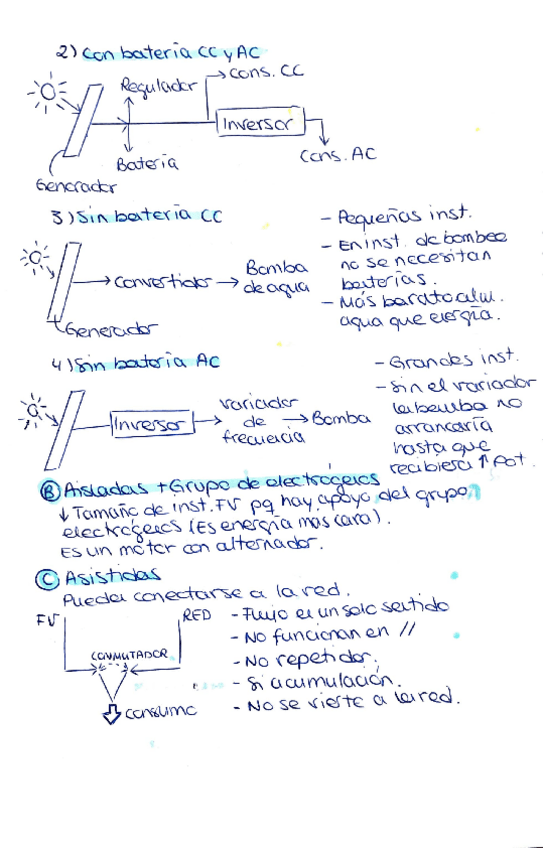 2) Con batería CC y AC
Regulador
cons. CC
Inversor
Batería
Cons. AC
Generador
3) Sin batería CC
Convertidor
Bomba
de agua
Generador
- Pequeñas inst.
- En inst. de bombeo
no se necesitan
baterías.
- Más barato alm.
agua que energía.
4) Sin batería AC
Inversor
variador
de
frecuencia
Bomba
- Grandes inst.
- Sin el variador
la bomba no
arrancaría
hasta que
recibiera ↑ Pot.
B Aisladas + Grupo de electrógenos
↓ Tamaño de inst. FV pq hay apoyo del grupo
electrógenos (Es energía mas cara).
Es un motor con alternador.
C Asistidas
Pueden conectarse a la red.
FV
RED
CONMUTADOR
consumo
- Flujo en un solo sentido
- No funcionan en //
- No repetidor.
- Sí acumulación.
- No se vierte a la red.